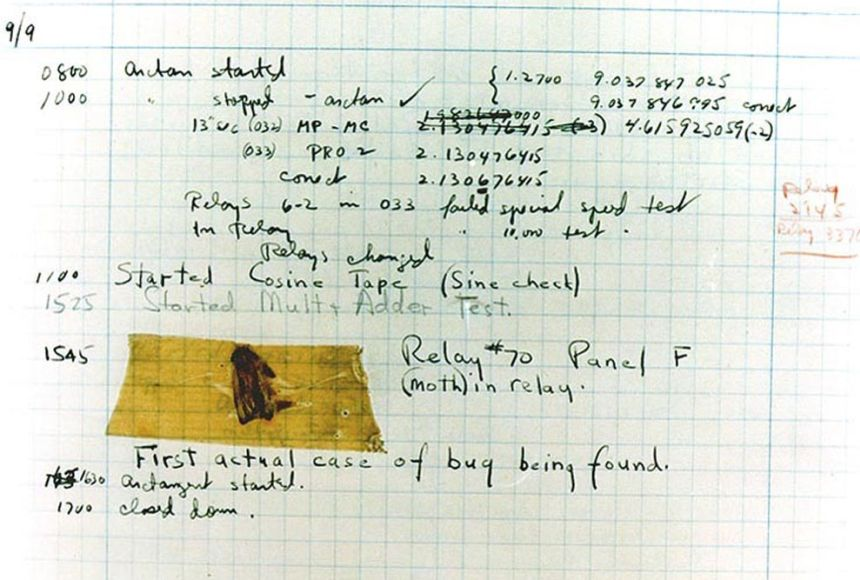 9/9
0800 arctan started { 1.2700 9.037 847 025
1000 " stopped - arctan ✓ 9.037 846 995 correct
13" uc (032) MP - MC 2.130476415 4.615925059(-2)
(033) PRO 2 2.130476415
correct 2.130676415
Relays 6-2 in 033 failed special speed test
In relay " 10,000 test .
Relays changed
Relay
2145
Relay 3370
1100 Started Cosine Tape (Sine check)
1525 Started Mult + Adder Test.
1545 Relay #70 Panel F
(moth) in relay.
First actual case of bug being found.
1630 arctangent started.
1700 closed down .